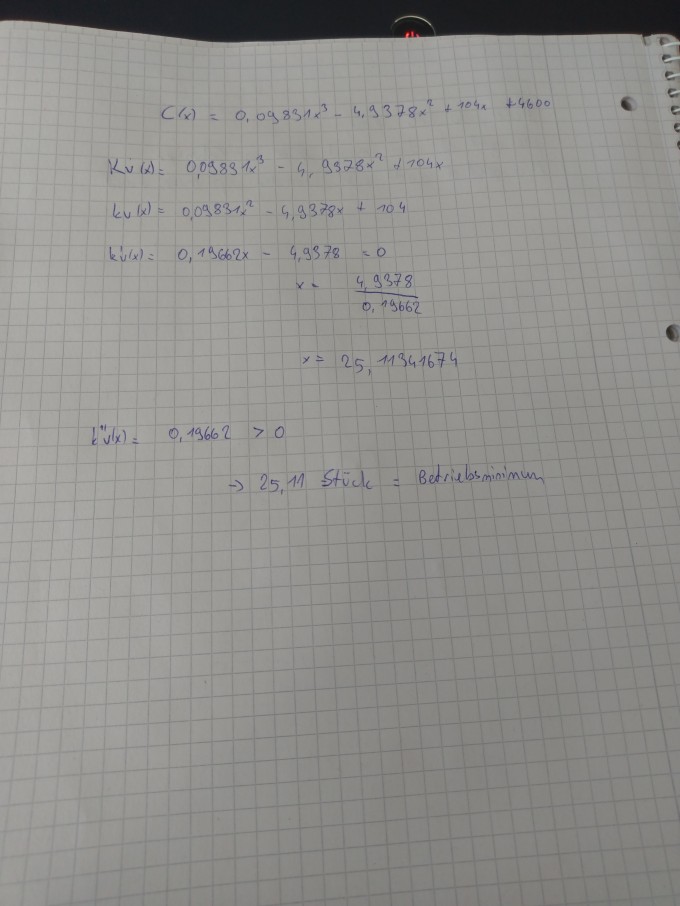 C(x) = 0,09831x³ - 4,9378x² + 104x + 4600
Kv(x) = 0,09831x³ - 4,9378x² + 104x
kv(x) = 0,09831x² - 4,9378x + 104
kv'(x) = 0,19662x - 4,9378 = 0
x = 4,9378
0,19662
x = 25,11341674
kv''(x) = 0,19662 > 0
→ 25,11 Stück = Betriebsminimum